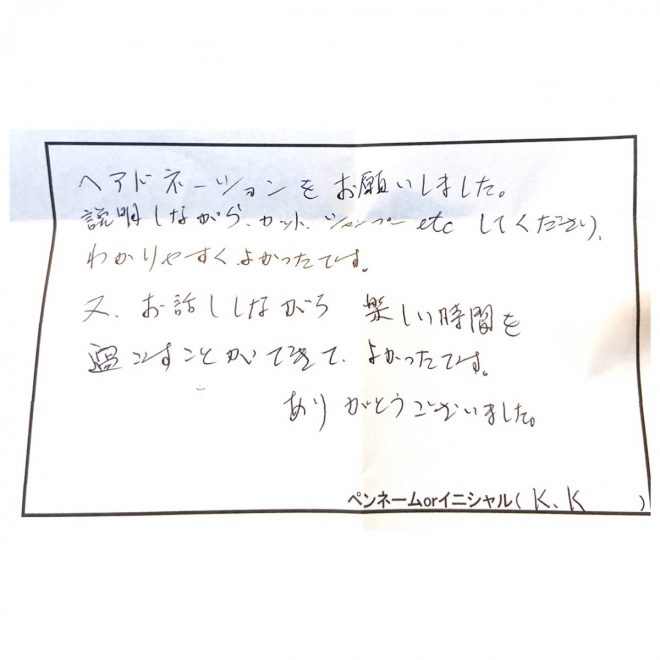 ヘアドネーションをお願いしました。
説明しながら、カット、シャンプー etc してくださり、
わかりやすくよかったです。
又、お話ししながら 楽しい時間を
過ごすことができて、よかったです。
ありがとうございました。
ペンネームorイニシャル( K、K )